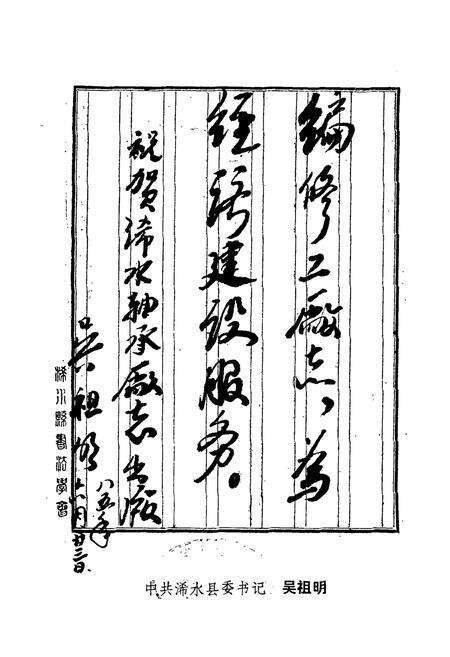 编修工厂志，为
经济建设服务。
祝贺浠水轴承厂志出版
吴祖明
八五年
十一月廿三日
浠水县书法学会
中共浠水县委书记 吴祖明